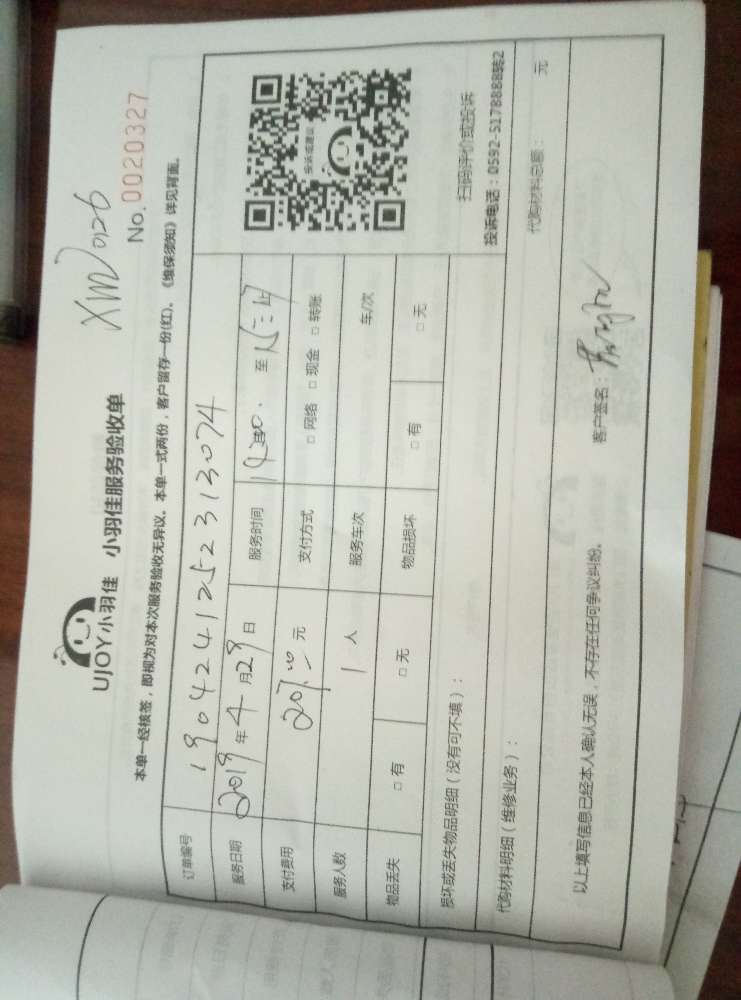 XM0126
UJOY小羽佳 小羽佳服务验收单
No. 0020327
本单一经核签，即视为对本次服务验收无异议。本单一式两份，客户留存一份(红)。《维保须知》详见背面。
订单编号 190424125231307​4
服务日期 2019年4月29日 服务时间 至
支付费用 元 支付方式 □网络 □现金 □转账
服务人数 1人 服务车次 车/次
物品丢失 □有 □无 物品损坏 □有 □无
投诉或建议
扫码评价或投诉
投诉电话：0592-5178888转2
损坏或丢失物品明细（没有可不填）：
代购材料明细（维修业务）： 代购材料总额： 元
以上填写信息已经本人确认无误，不存在任何争议纠纷。 客户签名：